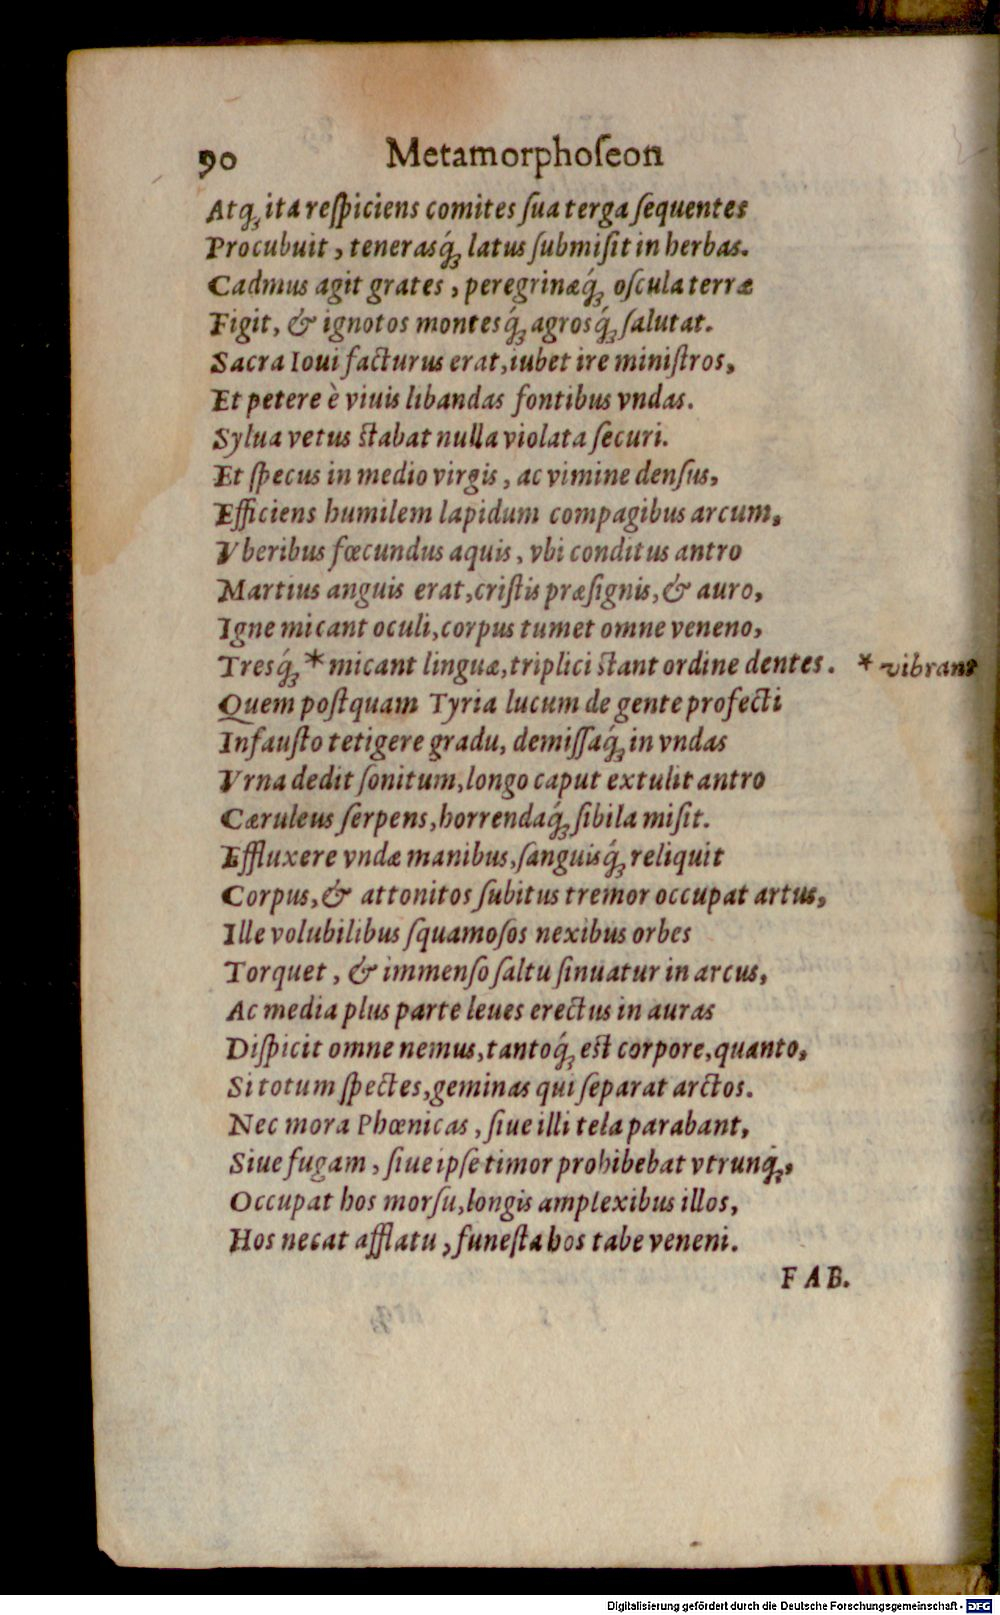 90 Metamorphoſeon
Atq́ꝫ ita reſpiciens comites ſua terga ſequentes
Procubuit, tenerasq́ꝫ latus ſubmiſit in herbas.
Cadmus agit grates, peregrinæq́ꝫ oſcula terræ
Figit, & ignotos montesq́ꝫ agrosq́ꝫ ſalutat.
Sacra Ioui facturus erat, iubet ire miniſtros,
Et petere è viuis libandas fontibus vndas.
Sylua vetus ſtabat nulla violata ſecuri.
Et ſpecus in medio virgis, ac vimine denſus,
Efficiens humilem lapidum compagibus arcum,
Vberibus fœcundus aquis, vbi conditus antro
Martius anguis erat, criſtis præſignis, & auro,
Igne micant oculi, corpus tumet omne veneno,
Tresq́ꝫ * micant linguæ, triplici ſtant ordine dentes. * vibrant
Quem poſtquam Tyria lucum de gente profecti
Infauſto tetigere gradu, demiſſaq́ꝫ in vndas
Vrna dedit ſonitum, longo caput extulit antro
Cæruleus ſerpens, horrendaq́ꝫ ſibila miſit.
Effluxere vndæ manibus, ſanguisq́ꝫ reliquit
Corpus, & attonitos ſubitus tremor occupat artus,
Ille volubilibus ſquamoſos nexibus orbes
Torquet, & immenſo ſaltu ſinuatur in arcus,
Ac media plus parte leues erectus in auras
Diſpicit omne nemus, tantoq́ꝫ eſt corpore, quanto,
Si totum ſpectes, geminas qui ſeparat arctos.
Nec mora Phœnicas, ſiue illi tela parabant,
Siue fugam, ſiue ipſe timor prohibebat vtrunq́ꝫ,
Occupat hos morſu, longis amplexibus illos,
Hos necat afflatu, funeſta hos tabe veneni.
FAB.
Digitalisierung gefördert durch die Deutsche Forschungsgemeinschaft - DFG